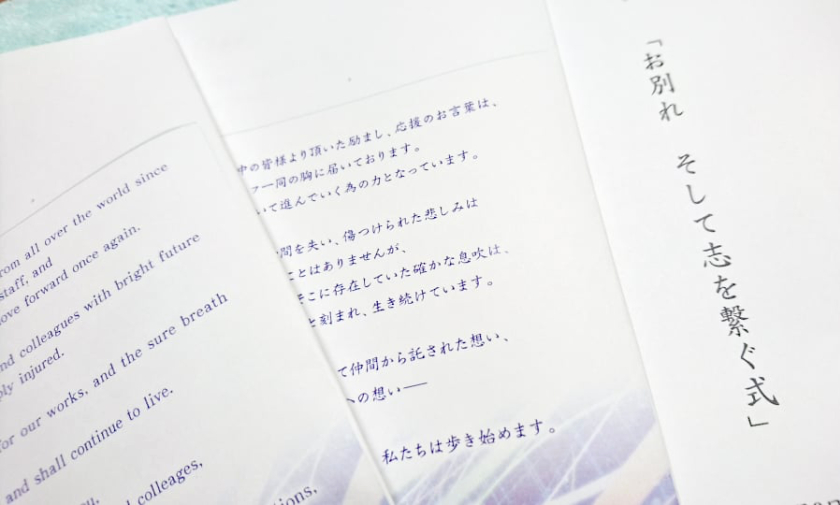 rom all over the world since
staff, and
ove forward once again.
nd colleagues with bright future
ply injured.
for our works, and the sure breath
and shall continue to live.
d colleges,
ions,
中の皆様より頂いた励まし、応援のお言葉は、
フ一同の胸に届いております。
いて進んでいく為の力となっています。
間を失い、傷つけられた悲しみは
ことはありませんが、
そこに存在していた確かな息吹は、
と刻まれ、生き続けています。
て仲間から託された想い、
への想い――
私たちは歩き始めます。
「お別れ そして志を繋ぐ式」